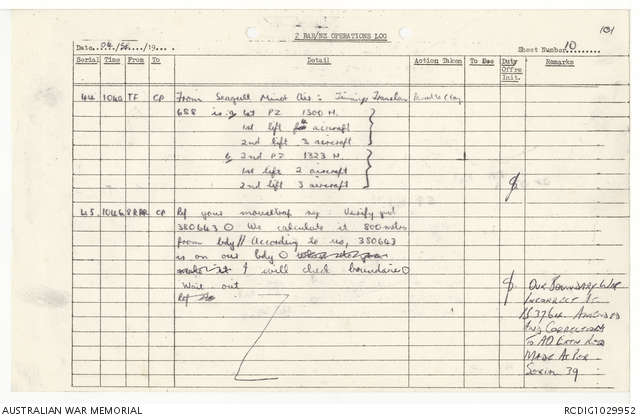 101
2 RAR/NZ OPERATIONS LOG
Date 04/Sep/19....
Sheet Number 10
Serial Time From To Detail Action Taken To Dec Duty Offrs Init. Remarks
44 1040 TF CP From Seagull Minor Air: Timings
688 is 1st PZ 1300 H.
1st lift aircraft
2nd lift 3 aircraft
& 2nd PZ 1323 H.
1st lift 2 aircraft
2nd lift 3 aircraft
45 1046 8RAR CP Ref your mousetrap msg. Verify
380643 O We calculate it 800 metres
from bdy // According to us, 380643
is on our bdy O
I will check boundaries O
Wait out
Ref
OUR BOUNDARY WAS
INCORRECT IE
IS 3764. AMENDED
AND CORRECTION
TO AO EXTN
MADE AS PER
SERIAL 39
AUSTRALIAN WAR MEMORIAL
RCDIG1029952